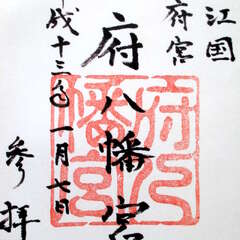 江国
府宮
府八幡宮
平成十三年一月七日
参拝
府八
幡宮